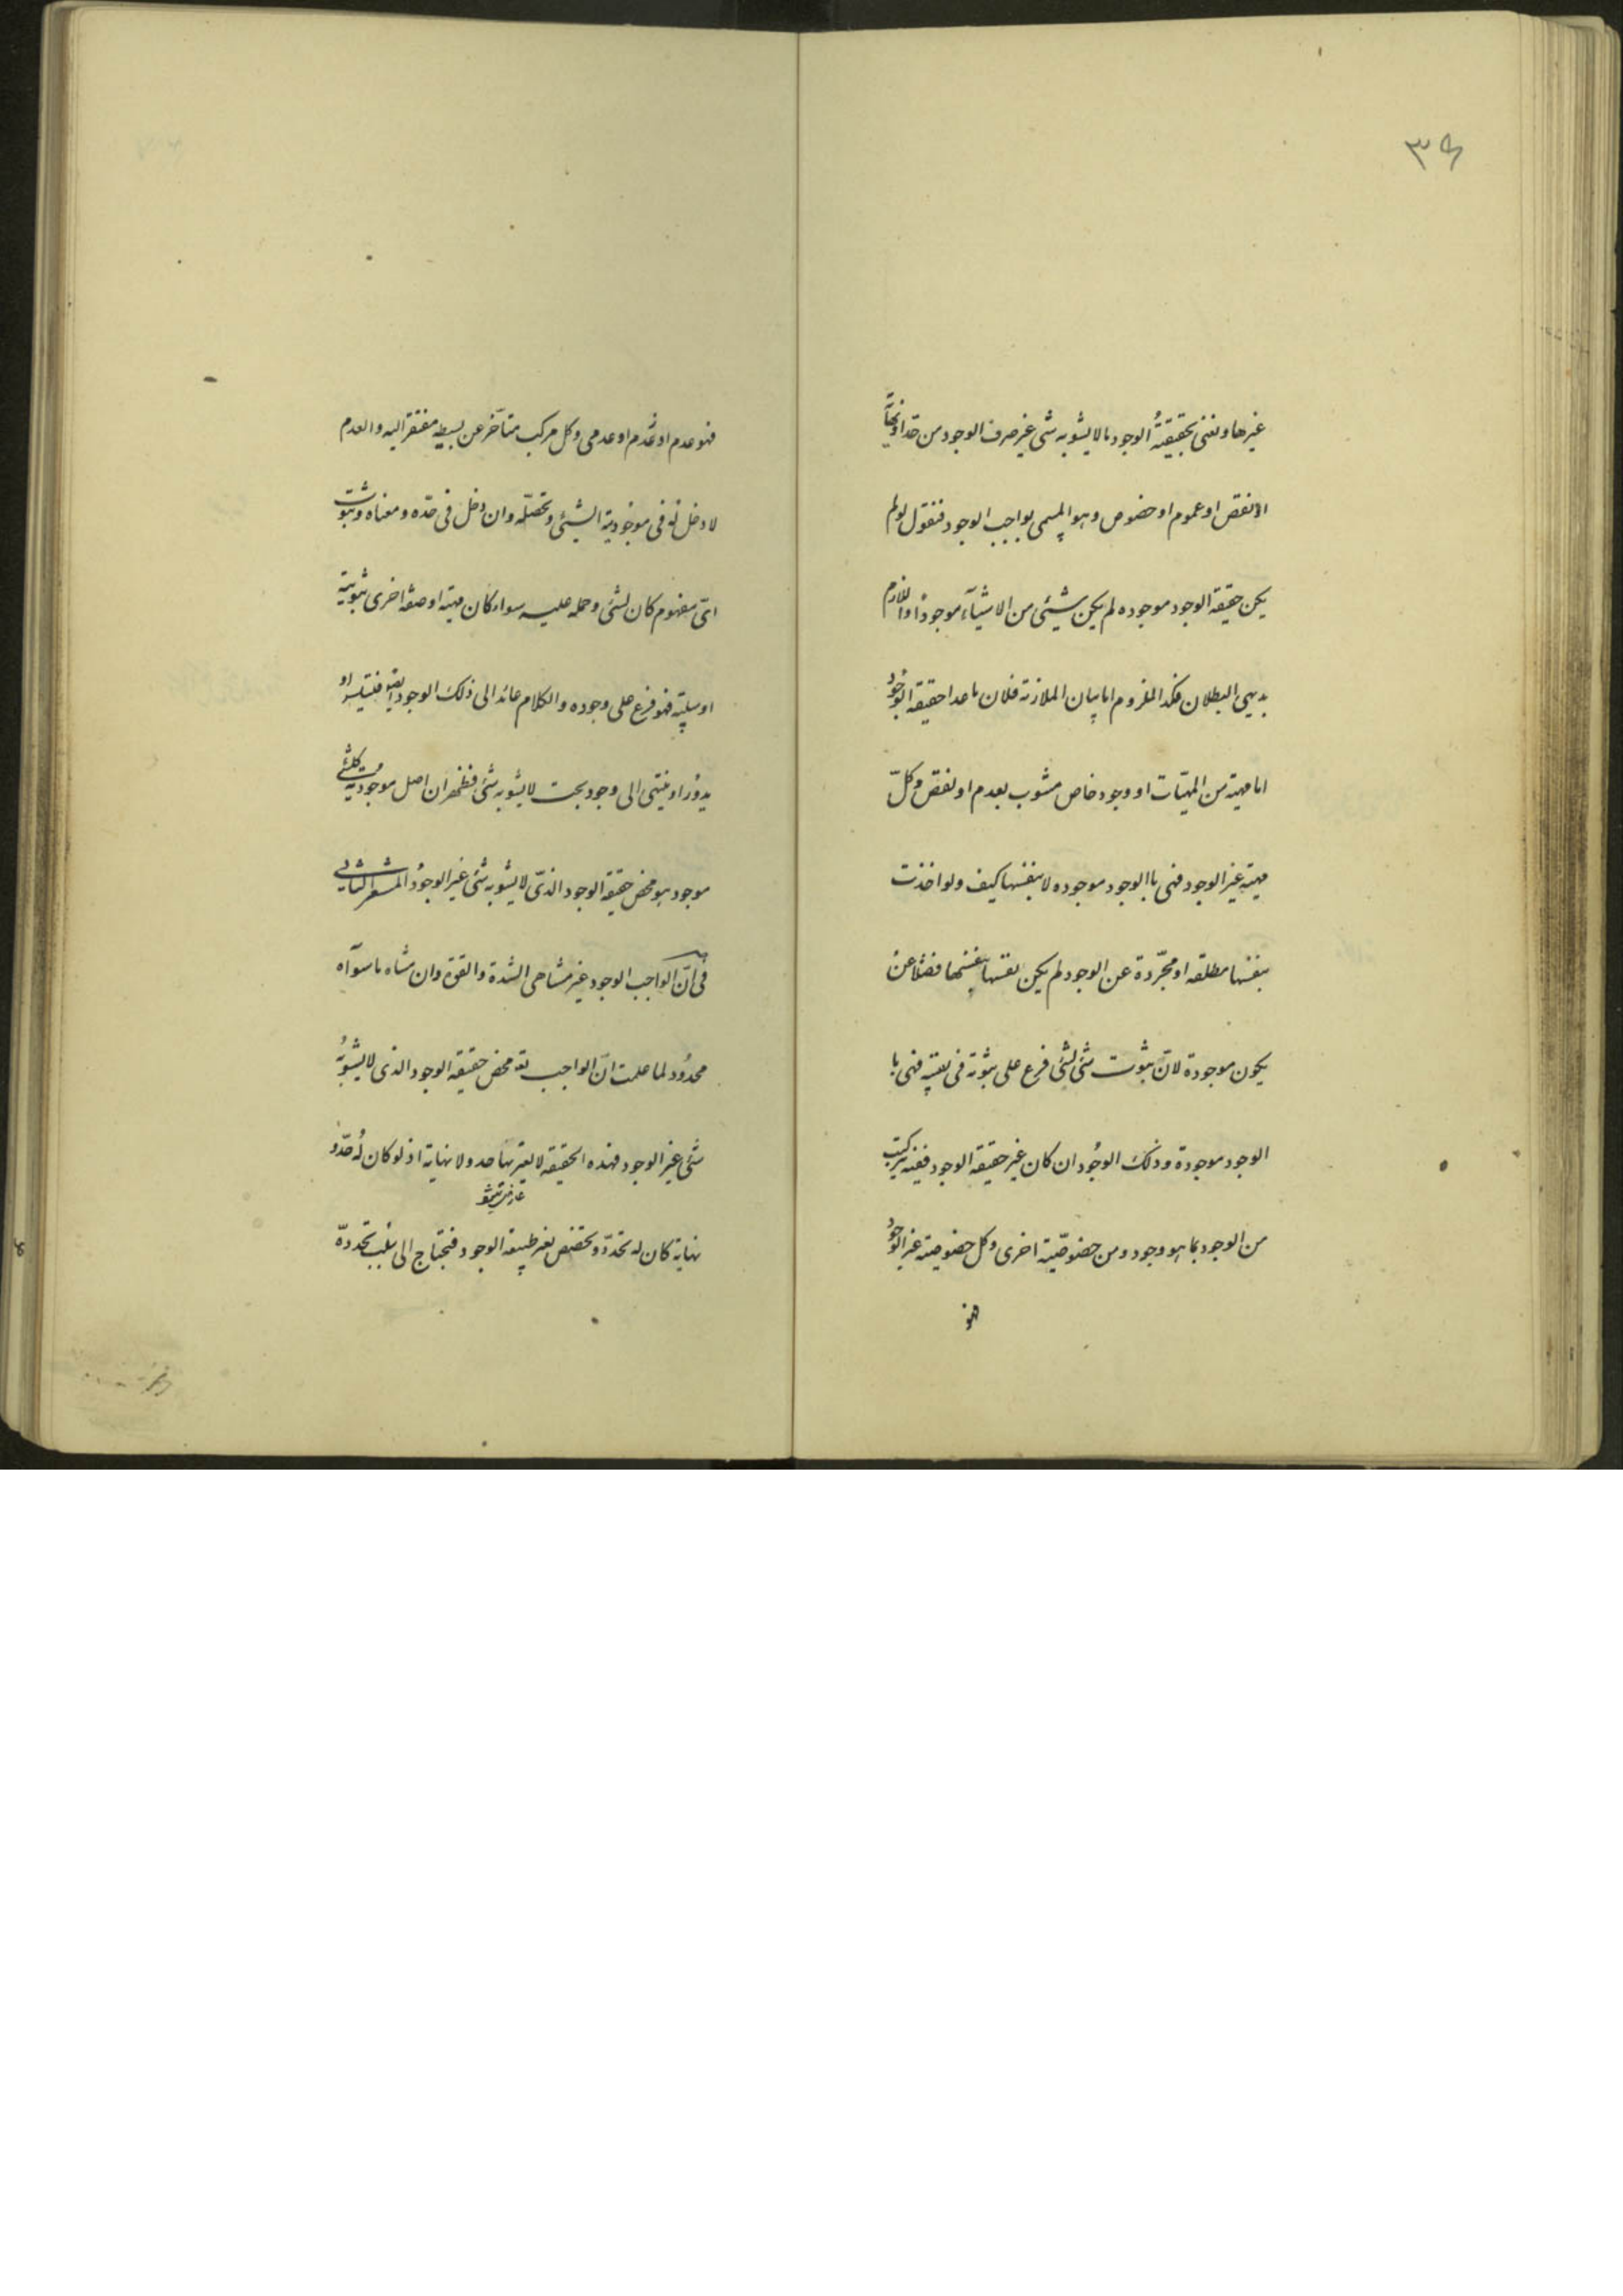 ۳۶
غيرها ونعنى بحقيقة الوجود ما لا يشوبه شى غير صرف الوجود من حد او نهاية
او نقص او عموم او خصوص وهو المسمى بواجب الوجود فنقول لو لم
يكن حقيقة الوجود موجوده لم يكن شيئى من الاشيآء موجودًا واللازم
بديهى البطلان فكذا الملزوم اما بيان الملازمة فلان ما عدا حقيقة الوجود
اما مهية من المهيّات او وجود خاص مشوب بعدم او نقص وكلّ
مهية غير الوجود فهى باالوجود موجوده لا بنفسها كيف ولو اخذت
بنفسها مطلقه او مجرّدة عن الوجود لم يكن نفسها نفسها فضلا عن
يكون موجودة لانّ ثبوت شئ لشئ فرع على ثبوته فى نفسه فهى با
الوجود موجودة وذلك الوجُود ان كان غير حقيقة الوجود ففيه تركيب
من الوجود بما هو وجود ومن خصوصّية اخرى وكل خصوصية غير الوجود
فهو
فهو عدم او عدم او عدمى وكل مركب متأخر عن بسيطه مفتقر اليه والعدم
لا دخل له فى موجودية الشيئى وتحصّله وان دخل فى حدّه ومعناه وثبوت
اىّ مفهوم كان لشئ وحمله عليه سواء كان مهية او صفة اخرى ثبوتية
او سلبيّة فهو فرع على وجوده والكلام عائد الى ذلك الوجود ايضا فيتسلسل او
يدور او ينتهى الى وجود بحت لا يشوبه شئ فظهر ان اصل موجودية كلشئ
موجود هو محض حقيقة الوجود الذىّ لا يشوبه شئ غير الوجود المشعر الثانى
فى انّ الواجب الوجود غير متناهى الشدة والقوة وان ما سواه
محدُود لما علمت انّ الواجب تع محض حقيقة الوجود الذى لا يشوبُه
شئ غير الوجود فهذه الحقيقة لا يعتريها حد ولا نهاية اذ لو كان لُه حدّ و
نهاية كان له تحددّ وتخصّص بغير طبيعة الوجود فيحتاج الى سبب يحددّه